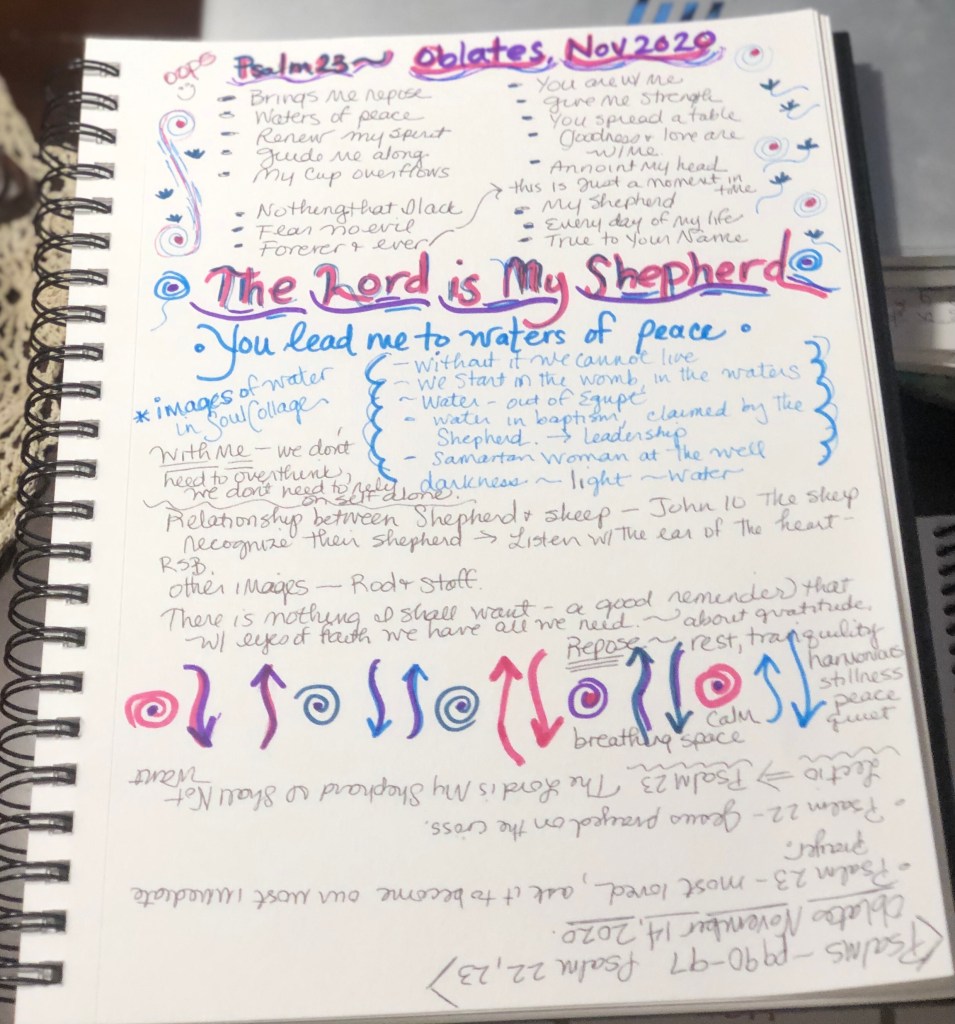 oops
Psalm 23~ Oblates, Nov 2020
- Brings me repose
- Waters of peace
- Renew my spirit
- Guide me along
- My cup overflows
- Nothing that I lack
- Fear no evil
- Forever & ever
- You are w/ me
- give me strength
- You spread a table
- Goodness & love are
w/ me.
- Annoint my head
→ this is just a moment in
time
- My Shepherd
- Every day of my life
- True to Your Name
The Lord is My Shepherd
• You lead me to waters of peace •
* images of water
in SoulCollage
- without it we cannot live
- we start in the womb, in the waters
~ Water - out of Egypt
- water in baptism, claimed by the
Shepherd. → leadership
- Samaritan Woman at the well
darkness ~ light ~ water
With Me - we don't
need to overthink,
we don't need to rely
on self alone.
Relationship between Shepherd & sheep - John 10 The sheep
recognize their shepherd → Listen w/ the ear of the heart -
RSB.
other images - Rod & Staff.
There is nothing I shall want - a good reminder that
w/ eyes of faith we have all we need. ~ about gratitude.
Repose ~ rest, tranquility
harmonious
stillness
peace
quiet
calm
breathing space
<Psalms - pg 90-97 Psalm 22, 23>
Oblates November 14, 2020.
• Psalm 23 - most loved, ask it to become our most immediate
prayer.
• Psalm 22 - Jesus prayed on the cross.
Lectio ⇒ Psalm 23 The Lord is My Shepherd I Shall Not
Want